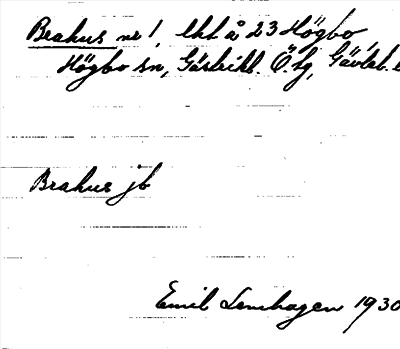 Brahus nr 1, lht å 23 Högbo,
Högbo sn, Gästrikl. Ö. tg, Gävleb. l
Brahus jb
Emil Lenhagen 1930